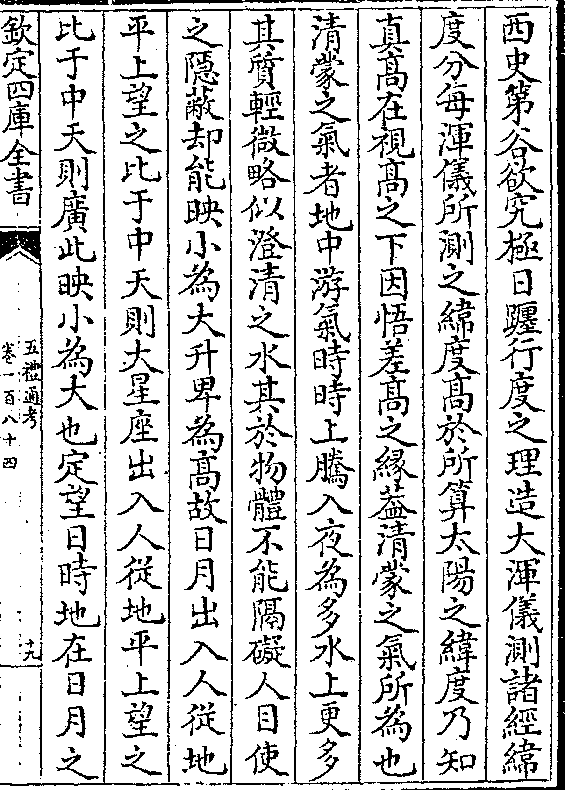 西史第谷欲究極日躔行度之理造大渾儀測諸經緯
度分每渾儀所測之緯度髙於所算太陽之緯度乃知
真髙在視髙之下因悟差髙之縁葢清蒙之氣所為也
清蒙之氣者地中游氣時時上騰入夜為多水上更多
其質輕微略似澄清之水其於物體不能隔礙人目使
之隠蔽却能映小為大升卑為髙故日月出入人從地
平上望之比于中天則大星座出入人從地平上望之
比于中天則廣此映小為大也定望日時地在日月之
欽定四庫全書
五禮通考
卷一百八十四
十九